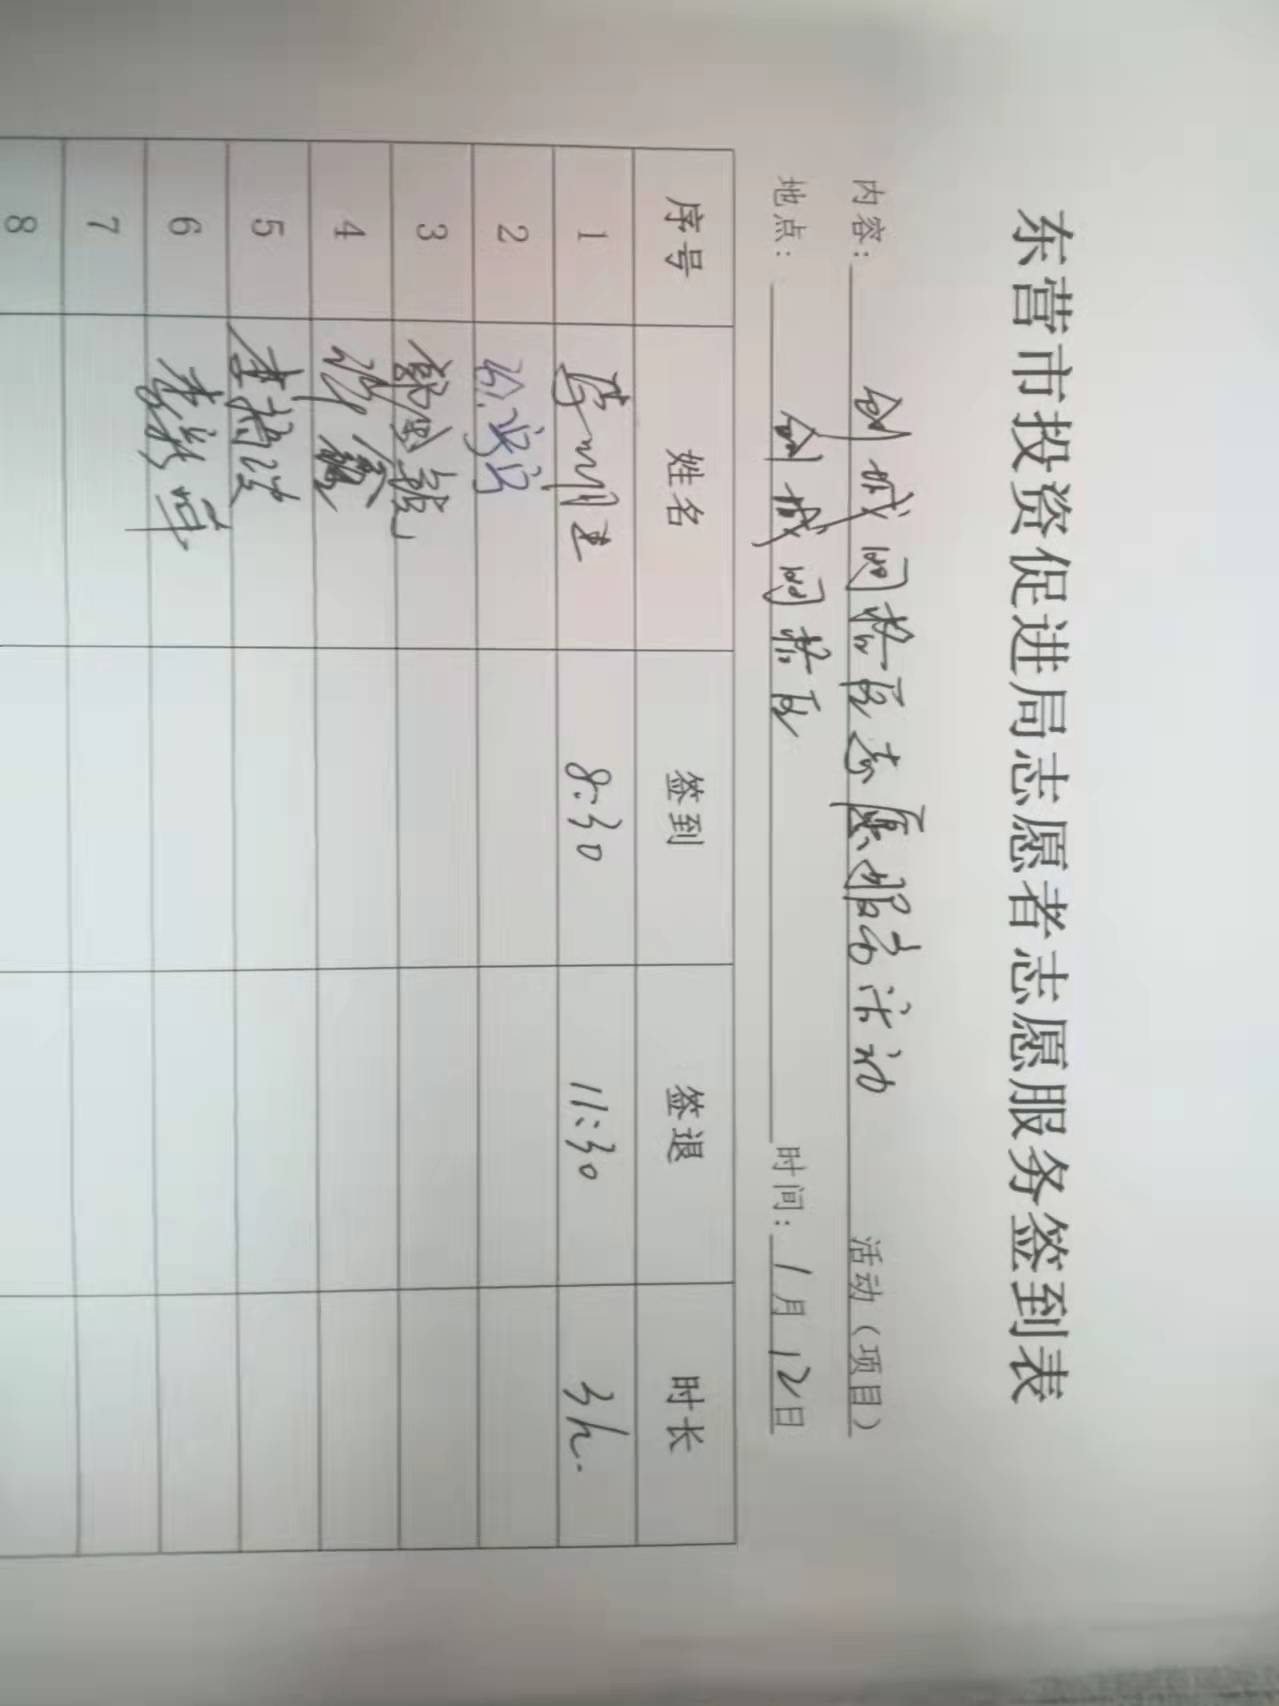 东营市投资促进局志愿者志愿服务签到表
内容：创城网格区志愿服务活动 活动（项目）
地点：创城网格区 时间：1月12日
序号 姓名 签到 签退 时长
1 8:30 11:30 3h.
2
3
4
5
6
7
8